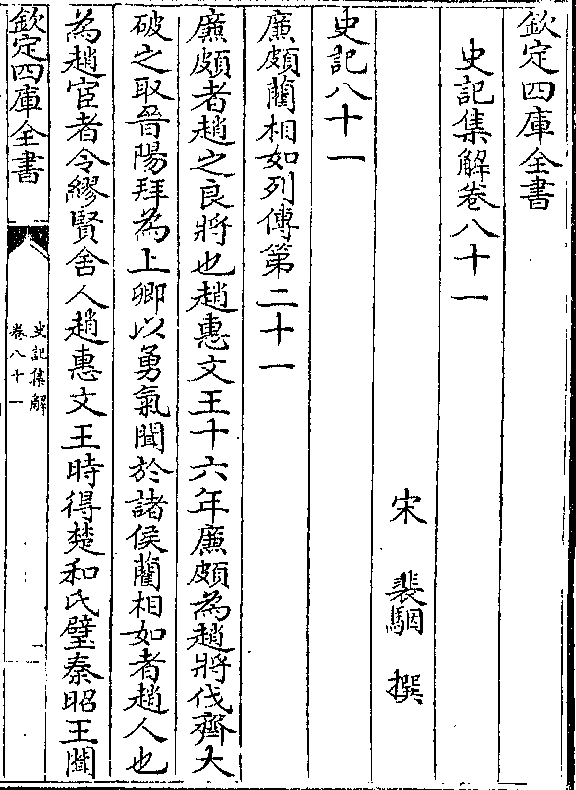 欽定四庫全書
史記集解卷八十一
宋　裴駰　撰
史記八十一
廉頗藺相如列傳第二十一
廉頗者趙之良將也趙惠文王十六年廉頗為趙將伐齊大
破之取晉陽拜為上卿以勇氣聞於諸侯藺相如者趙人也
為趙宦者令繆賢舍人趙惠文王時得楚和氏璧秦昭王聞
欽定四庫全書
史記集解
卷八十一
一